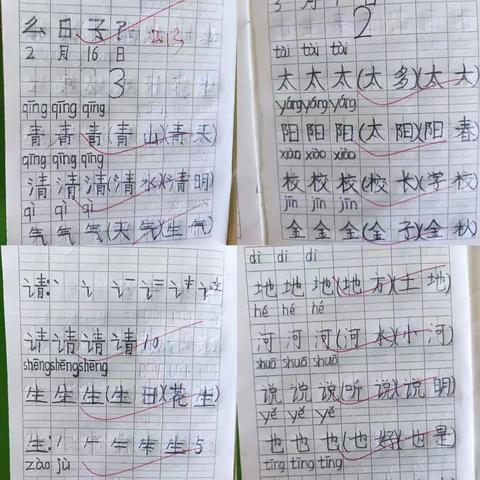 么日子?
2月16日
3
qīng qīng qīng
青 青 青(青山)(青天)
qīng qīng qīng
清 清 清(清水)(清明)
qì qì qì
气 气 气(天气)(生气)
2
tài tài tài
太 太 太(太多)(太太)
yáng yáng yáng
阳 阳 阳(太阳)(阳春)
xiào xiào xiào
校 校 校(校长)(学校)
jīn jīn jīn
金 金 金(金子)(金秋)
请:
请 请 请 请 10
shēng shēng shēng
生 生 生(生日)(花生)
生: 生 5
zào jù
dì dì dì
地 地 地(地方)(土地)
hé hé hé
河 河 河(河水)(小河)
shuō shuō shuō
说 说 说(听说)(说明)
yě yě yě
也 也 也(也好)(也是)
tīng tīng tīng